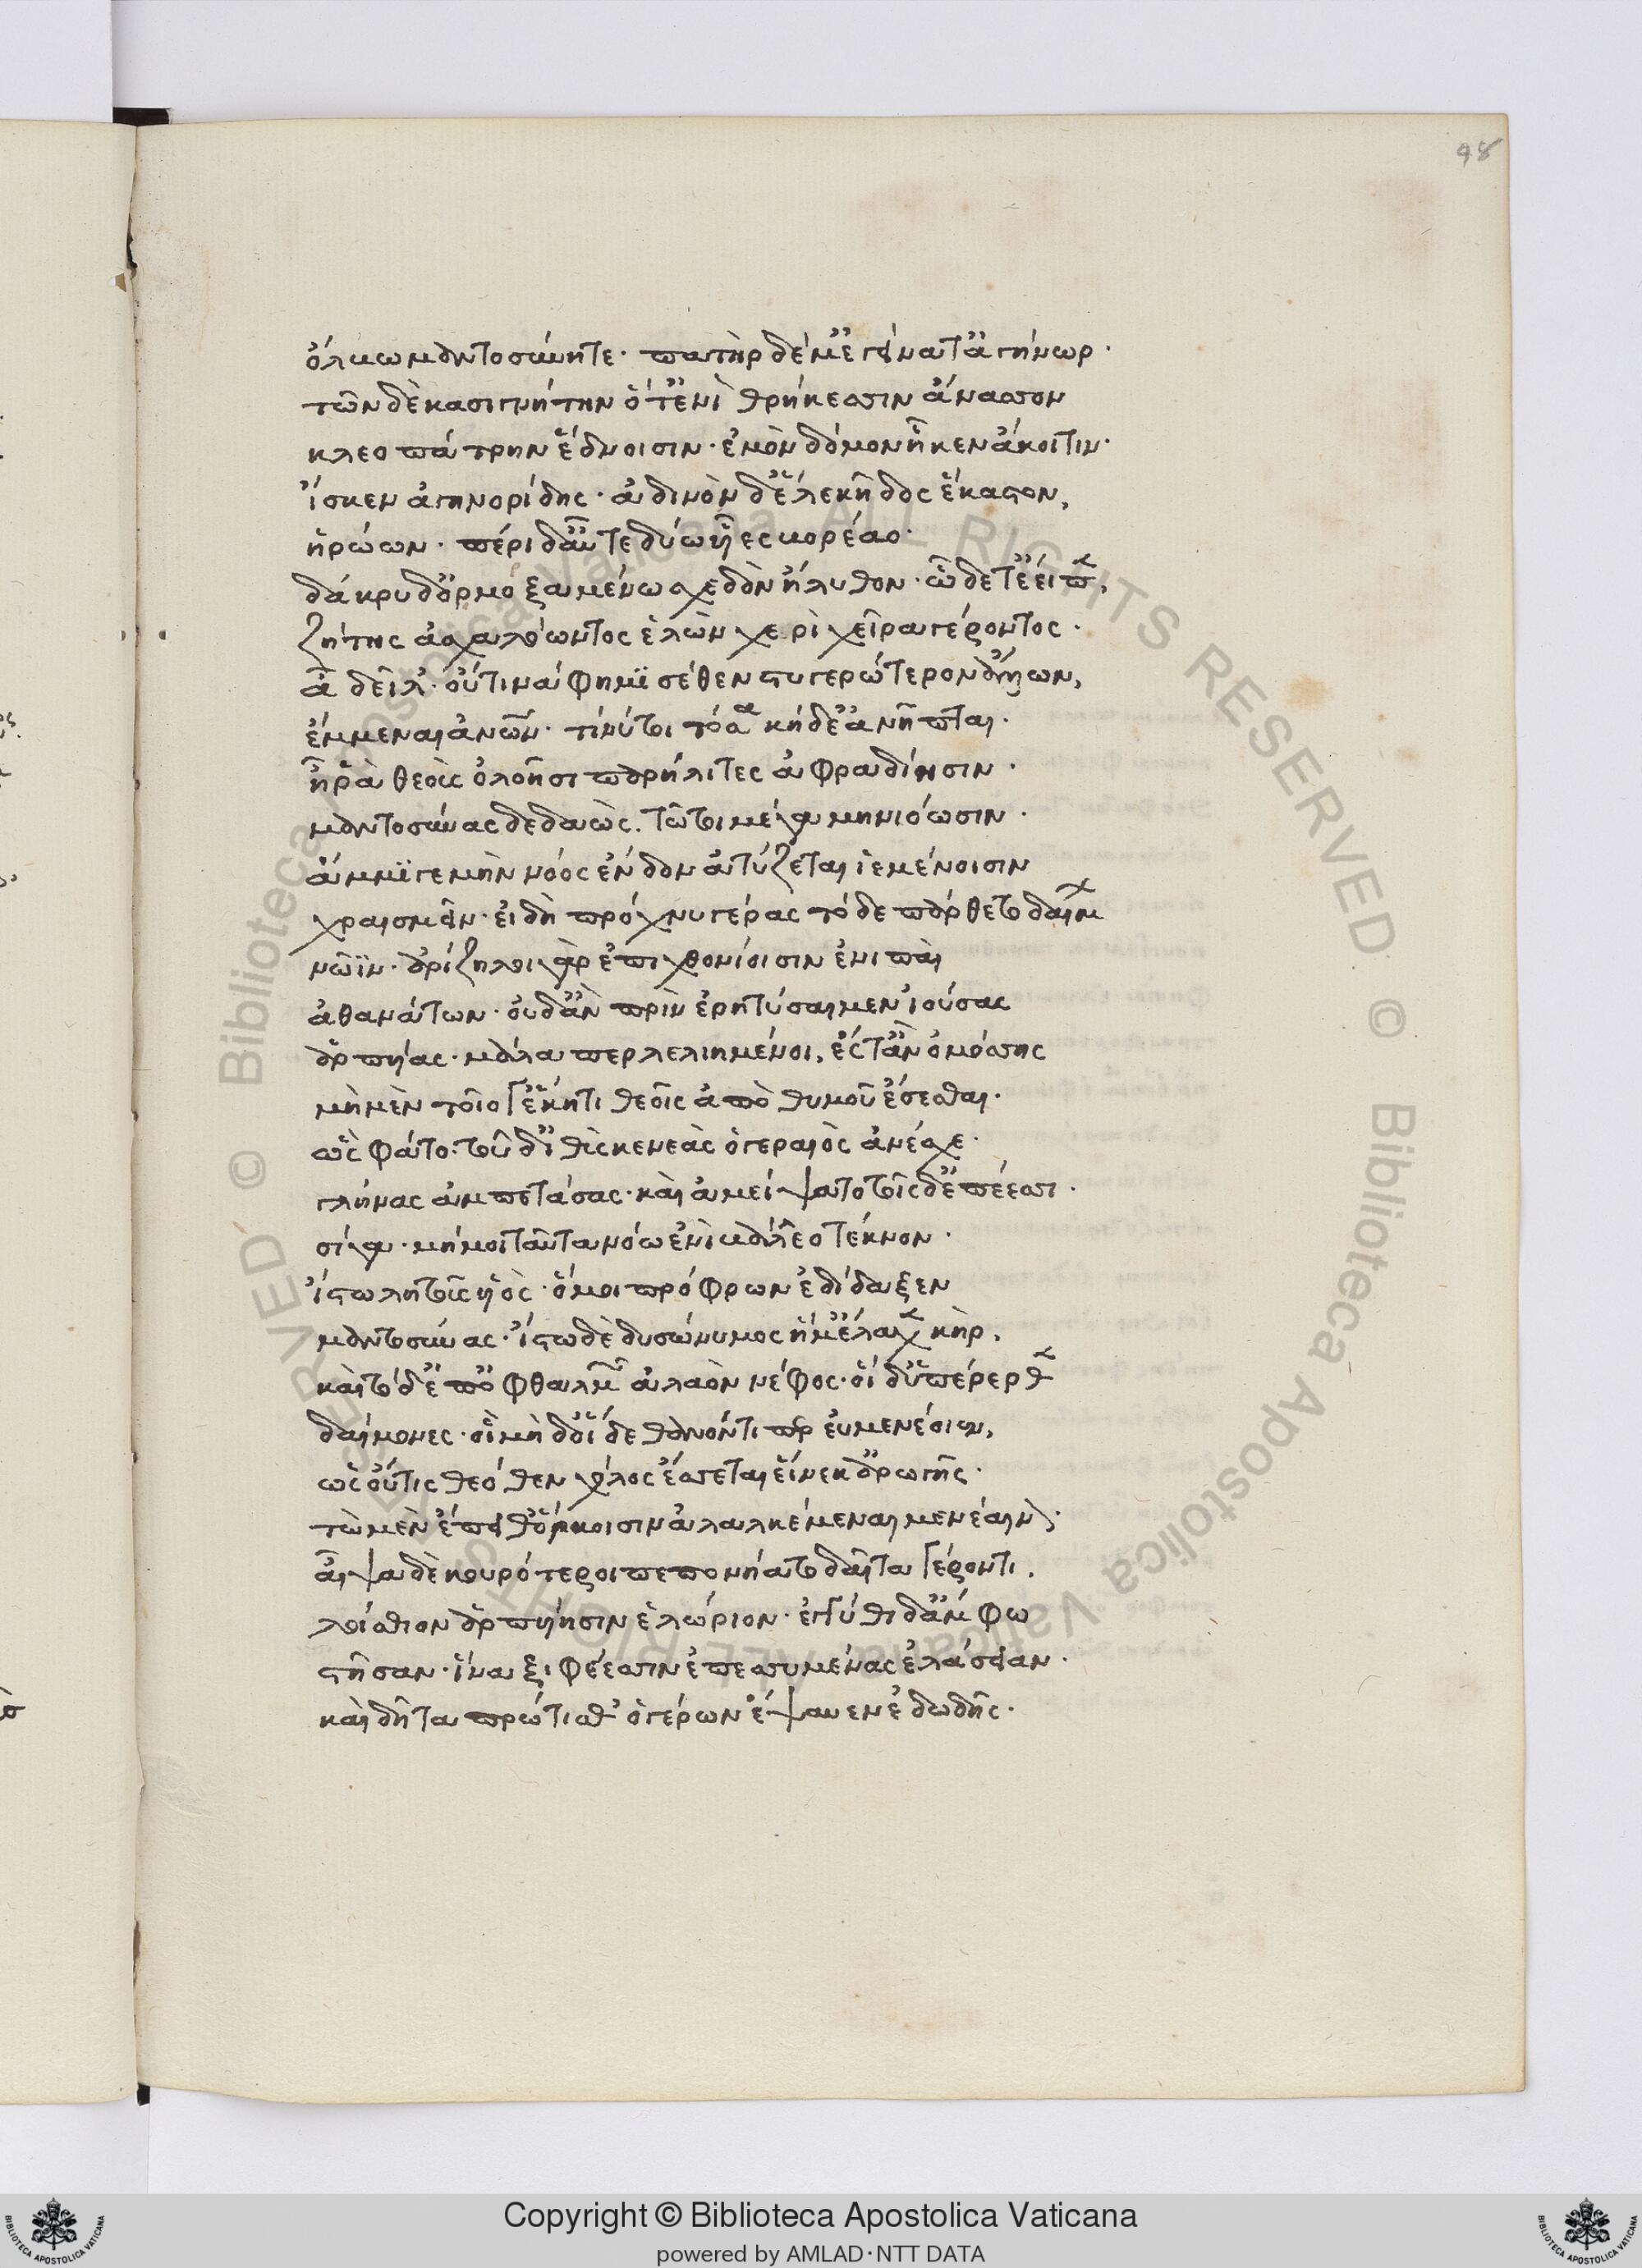 ὄλβω μαντοσύνητε· πατὴρ δέ μ' ἐγείνατ' ἀγήνωρ·
τῶν δὲ κασιγνήτην ὅτ' ἐνὶ θρήκεσσιν ἄνασσον
κλεοπάτρην ἕδνοισιν· ἐμὸν δόμον ἧκεν ἄκοιτιν·
ἴσκεν ἀγηνορίδης· ἀδινὸν δ' ἕλε κῆδος ἕκαστον,
ἡρώων· πέρι δ' αὖτε δύω υἷες βορέαο·
δάκρυ δ' ὀμορξαμένω σχεδὸν ἤλυθον· ὧδε τ' ἔειπ,
ζήτης ἀσχαλόωντος ἑλὼν χερὶ χεῖρα γέροντος·
ἆ δείλ'· οὔτινά φημϊ σέθεν στυγερώτερον ἄλλων,
ἔμμεναι ἀνων· τί νύ τοι τόσα κήδε' ἀνῆπται·
ἦ ῥὰ θεοὺς ὀλοῆσι παρήλιτες ἀφραδίησιν·
μαντοσύνας δεδαὼς. τῶ τοι μέγα μηνιόωσιν·
ἄμμϊ γε μὴν νόος ἔνδον ἀτύζεται ἱεμένοισιν
χραισμεῖν· εἰ δὴ πρόχνυ γέρας τόδε πάρθετο δαίμ
νῶϊν· ἀρίζηλοι γὰρ ἐπιχθονίοισιν ἐνιπαὶ
ἀθανάτων· οὐδ' ἂν πρὶν ἐρητύσαιμεν ἰούσας
ἁρπυίας· μάλα περ λελιημένοι, ἔστ' ἂν ὀμόσσης
μὴ μὲν τοῖο γ' ἕκητι θεοῖς ἀπὸ θυμοῦ ἔσεσθαι·
ὣς φάτο· τοῦ δ' ἰθὺς κενεὰς ὁ γεραιὸς ἀνέσχε·
γλήνας ἀμπετάσας· καὶ ἀμείψατο τοῖςδ' ἐπέεσσι·
σίγα· μή μοι ταῦτα νόω ἐνὶ βάλλεο τέκνον·
ἴστω λητοῦς υἱὸς· ὅ μοι πρόφρων ἐδίδαξεν
μαντοσύνας· ἴστω δὲ δυσώνυμος ἥ μ' ἔλαχ κὴρ,
καὶ τόδ' ἐπ' ὀφθαλμ ἀλαὸν νέφος· οἵ δ' ὑπέρερθ
δαίμονες· οἳ μὴ δ' οἵδε θανόντι περ εὐμενέοιεν,
ὡς οὔτις θεόθεν χόλος ἔσσεται εἵνεκ' ἀρωγῆς·
τὼ μὲν ἔπειθ' ὅρκοισιν ἀλαλκέμεναι μενέαιν·
αἶψα δὲ κουρότεροι πεπονήατο δαῖτα γέροντι,
λοίσθιον ἁρπυίησιν ἑλώριον· ἐγγύθι δ' ἄμφω
στῆσαν· ἵνα ξιφέεσσιν ἐπεσσυμένας ἐλάσειαν·
καὶ δὴ τὰ πρώτισθ' ὁ γέρων ἔψαυεν ἐδωδῆς·
98
Copyright © Biblioteca Apostolica Vaticana
powered by AMLAD·NTT DATA